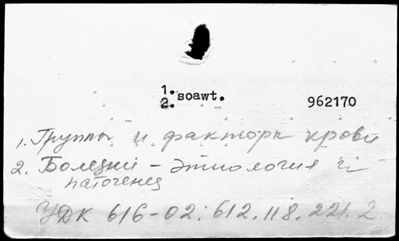 1.
2. soawt.
962170
1. Группы и факторы крови
2. Болезни – этиология и
патогенез
УДК 616-02:612.118.221.2